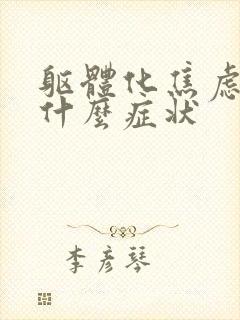 躯體化焦虑
什麼症状
李彦琴